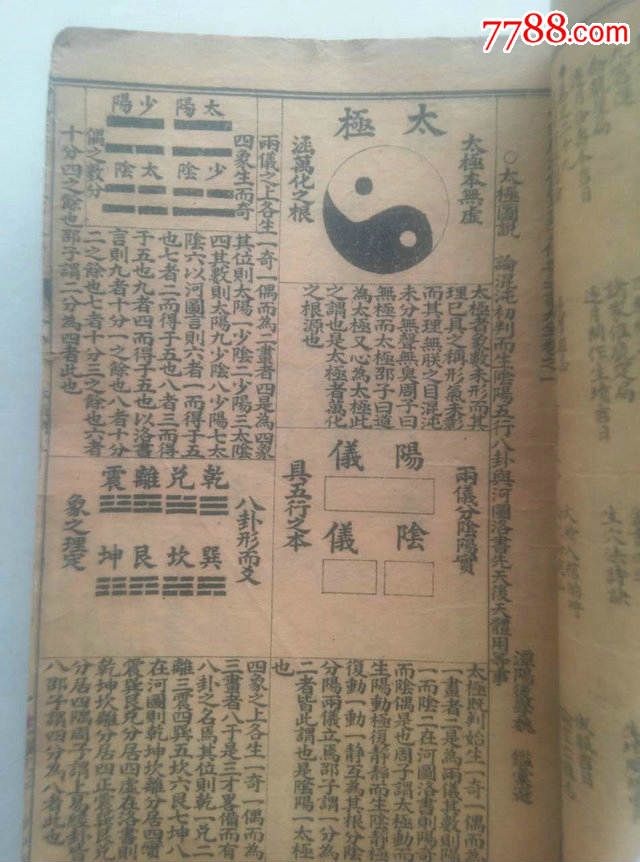 7788.com
○太極圖說 論混沌初判而生陰陽五行八卦與河圖洛書先天後天體用等事
潭陽後學魏 鑑彙述
太極
太極本無虛
涵萬化之根
太極者象數未形而其
理已具之稱形氣未彰
而其理無朕之目混沌
未分無聲無臭周子曰
無極而太極邵子曰道
為太極又心為太極此
之謂也是太極者萬化
之根源也
陽儀
陰儀
兩儀分陰陽實
具五行之本
太極既判始生一奇一偶而為
一畫者二是為兩儀其數則陽
一而陰二在河圖洛書則陽奇
而陰偶是也周子謂太極動而
生陽動極復靜靜而生陰靜極
復動一動一靜互為其根分陰
分陽兩儀立焉邵子謂一分為
二者皆此謂也是陰陽一太極
也
太陽
少陽
少陰
太陰
四象生而奇
偶之數分
兩儀之上各生一奇一偶而為二畫者四是為四象
其位則太陽一少陰二少陽三太陰
四其數則太陽九少陰八少陽七太
陰六以河圖言則六者一而得于五
也七者二而得于五也八者三而得
于五也九者四而得于五也以洛書
言則九者十分一之餘也八者十分
二之餘也七者十分三之餘也六者
十分四之餘也邵子謂二分為四者此也
乾兌離震
巽坎艮坤
八卦形而爻
象之理定
四象之上各生一奇一偶而為
三畫者八于是三才畧備而有
八卦之名焉其位則乾一兌二
離三震四巽五坎六艮七坤八
在河圖則乾坤坎離分居四實
震巽艮兌分居四虛在洛書則
乾坤坎離分居四正震巽艮兌
分居四隅周子謂上易經卦皆
八邵子謂四分為八者此也